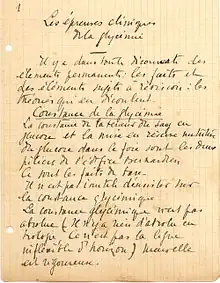 1
Les épreuves cliniques
de la glycémie
Il y a dans toute
des
éléments permanents, les faits et
des éléments sujets à révision : les
théories qui en découlent.
Constance de la glycémie
La constance de la teneur du sang en
glucose et la mise en réserve
du glucose dans le foie sont les deux
piliers de l'édifice bernardien
Ce sont les faits de base.
Il n'est pas
sur
la constance glycémique
La constance glycémique n'est pas
absolue (Il n'y a rien d'absolu en
biologie. Ce n'est pas la ligne
inflexible d'horizon)
est rigoureuse.